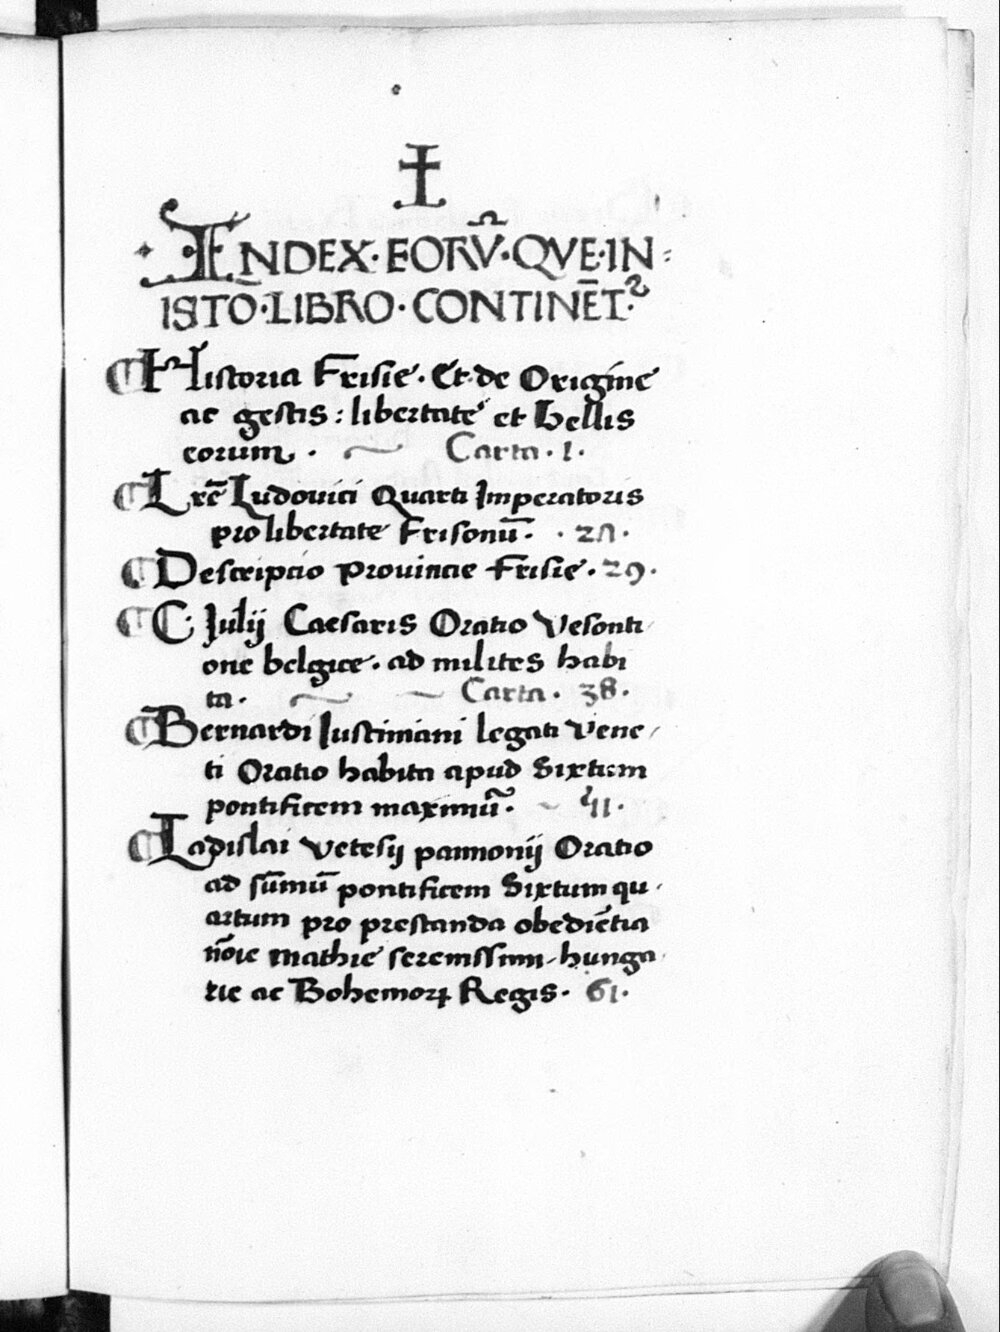 INDEX·EORV̄·QVE·IN
ISTO·LIBRO·CONTINĒT
Historia Frisie· Et de Origine
ac gestis: libertate et bellis
eorum· Carta· 1·
Lrē Ludouici Quarti Imperatoris
pro libertate Frisonū·
Descriptio prouincie Frisie· 29·
C· Julij Caesaris Oratio Vesonti
one belgice· ad milites habi
ta· Carta· 38·
Bernardi Iustiniani legati Vene
ti Oratio habita apud Sixtum
pontificem maximū·
Ladislai Vetesij pannonij Oratio
ad sūmū pontificem Sixtum qu
artum pro prestanda obediētia
nōie mathie serenissimi hunga
rie ac Bohemoꝝ Regis· 61·